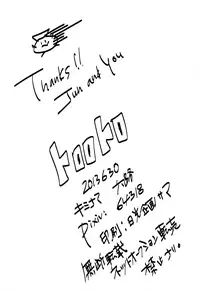 Thanks!!
Jun and You
トロロトロ
2013.6.30
キミナマ
Pixiv: 64318
印刷:日光企画サマ
無断転載
ネットオークション転売
禁止ナリ。